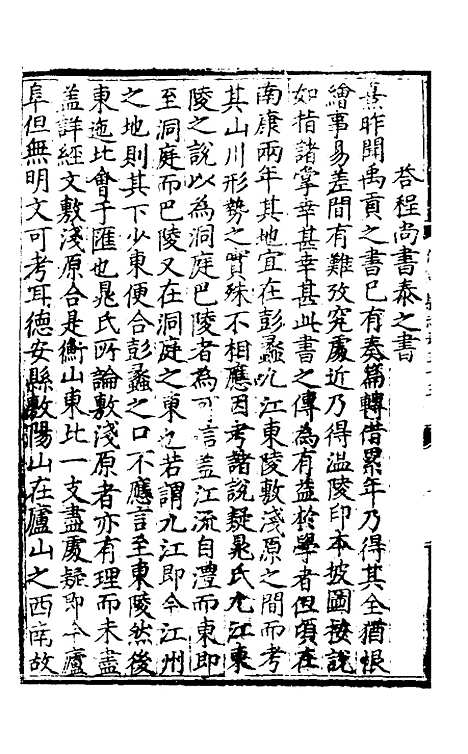 答程尚書泰之書
熹昨聞禹貢之書已有奏篇轉借累年乃得其全猶恨
繪事易差間有難攷究處近乃得温陵印本披圖按說
如指諸掌幸甚幸甚此書之傳為有益於學者但頃在
南康兩年其地宜在彭蠡九江東陵敷淺原之間而考
其山川形勢之實殊不相應因考諸說疑晁氏九江東
陵之說以為洞庭巴陵者為可言蓋江流自澧而東即
至洞庭而巴陵又在洞庭之東也若謂九江即今江州
之地則其下少東便合彭蠡之口不應言至東陵然後
東迤北會于匯也晁氏所論敷淺原者亦有理而未盡
盖詳經文敷淺原合是衡山東北一支盡處疑即今廬
阜但無明文可考耳德安縣敷陽山在廬山之西南故